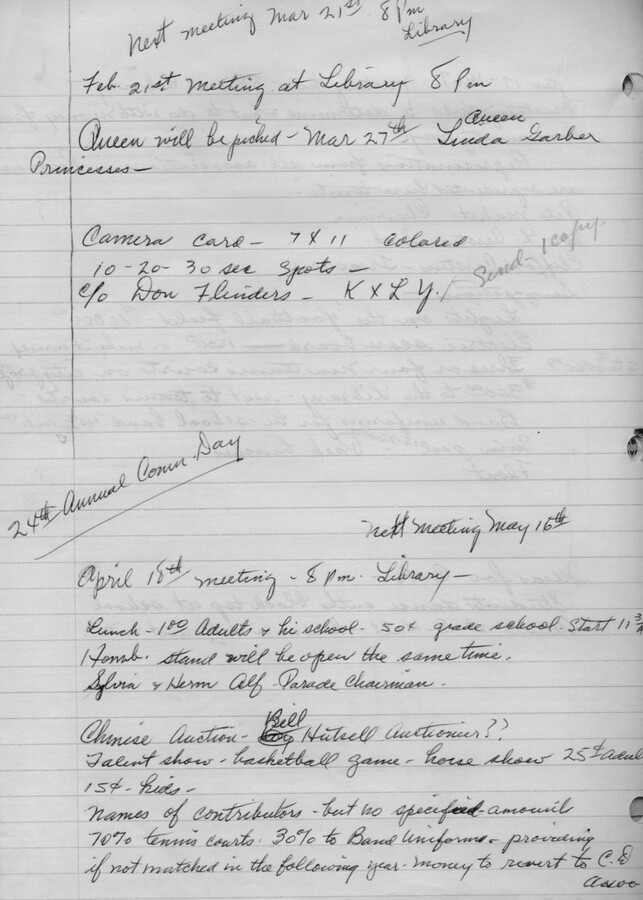 Next meeting Mar 21st 8 pm
Library
Feb. 21st Meeting at Library 8 Pm
Queen will be picked - Mar 27th Queen Linda Garber
Princesses -
Camera Card - 7 x 11 Colored
10 - 20 - 30 sec Spots -
Send - 1 copy.
c/o Don Flinders - KXLY.
24th Annual Comm. Day
Next Meeting May 16th
April 18th meeting - 8 pm. Library -
Lunch - 1.00 Adults & hi school - 50¢ grade school. Start 11
Hamb. stand will be open the same time.
Sylvia & Herm Alf - Parade Chairman.
Chinise Auction - Bill Hutsell Auctionier??
Talent show - basketball game - horse show 25¢ adul
15¢ - kids -
names of contributors - but no specified amounts
70% tennis courts. 30% to Band Uniforms - providing
if not matched in the following year. money to revert to C. D
assoc